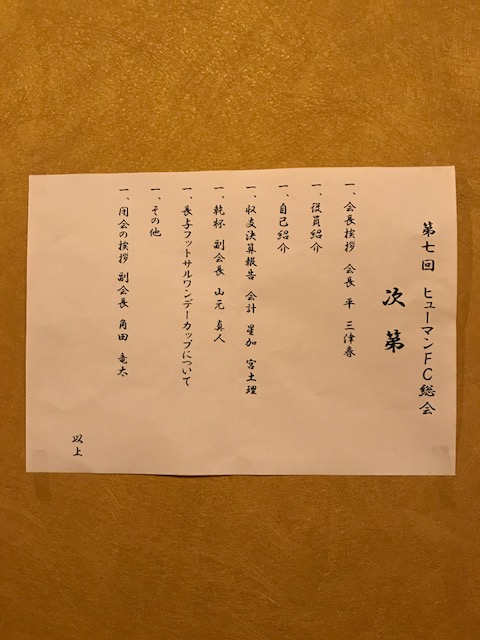 第七回 ヒューマンFC総会
次第
一、会長挨拶 会長 平 三津春
一、役員紹介
一、自己紹介
一、収支決算報告 会計 星加 宮土理
一、乾杯 副会長 山元 真人
一、長与フットサルワンデーカップについて
一、その他
一、閉会の挨拶 副会長 角田 竜太
以上